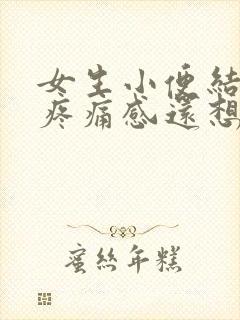 女生小便結
疼痛感還想
蜜絲年糕